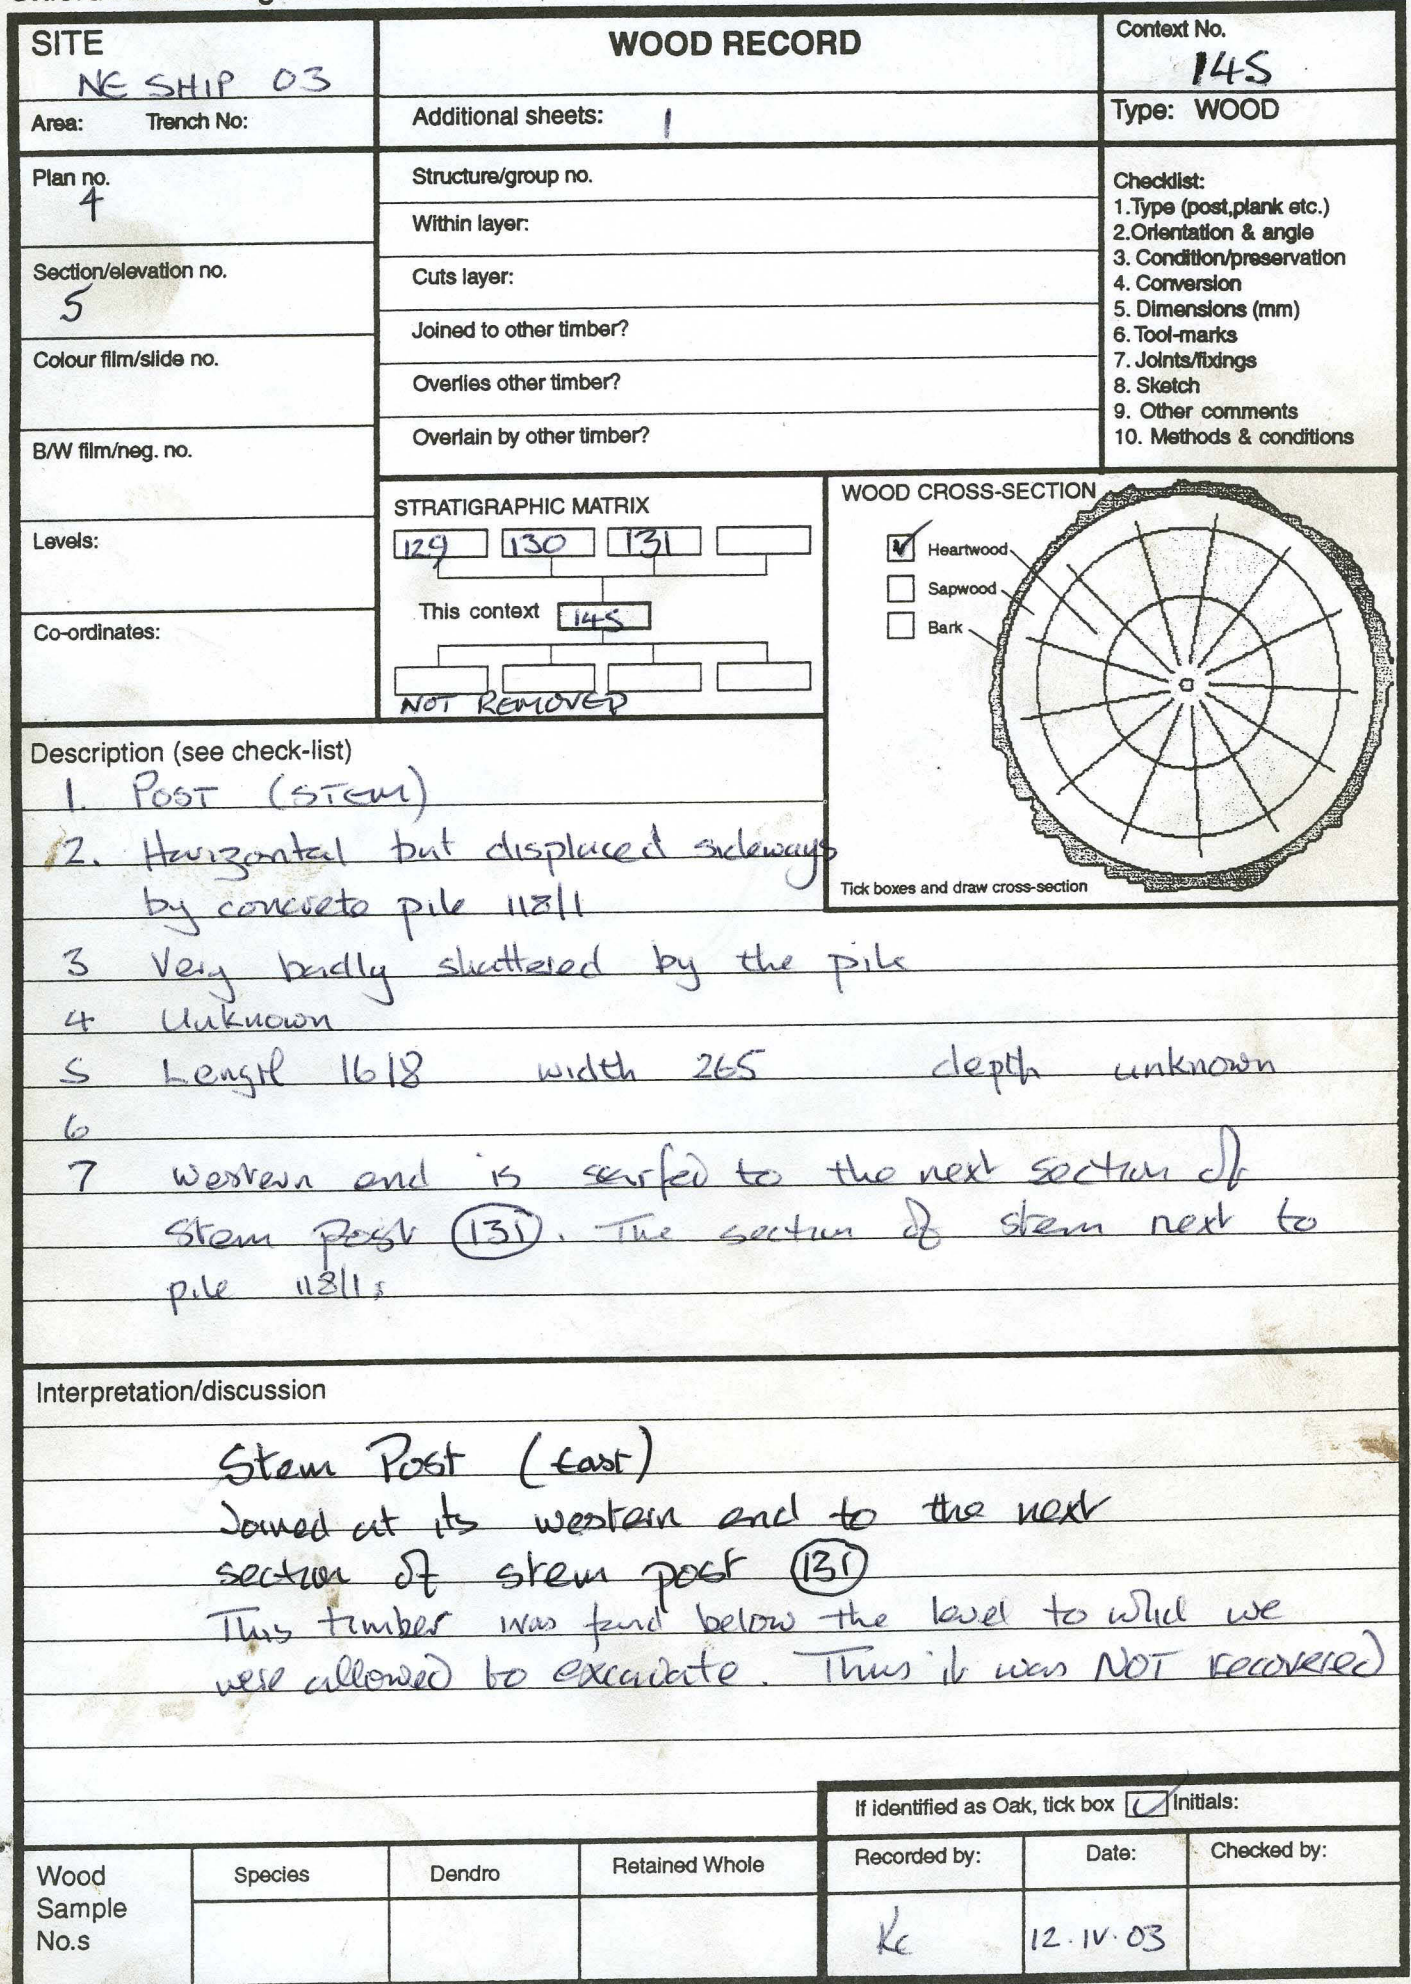 SITE
NE SHIP 03
WOOD RECORD
Context No.
145
Area: Trench No:
Additional sheets: 1
Type: WOOD
Plan no.
4
Structure/group no.
Within layer:
Section/elevation no.
5
Cuts layer:
Joined to other timber?
Colour film/slide no.
Overlies other timber?
Overlain by other timber?
B/W film/neg. no.
Checklist:
1.Type (post,plank etc.)
2.Orientation & angle
3. Condition/preservation
4. Conversion
5. Dimensions (mm)
6. Tool-marks
7. Joints/fixings
8. Sketch
9. Other comments
10. Methods & conditions
Levels:
Co-ordinates:
STRATIGRAPHIC MATRIX
129 130 131
This context 145
NOT REMOVED
WOOD CROSS-SECTION
Heartwood
Sapwood
Bark
Tick boxes and draw cross-section
Description (see check-list)
1. POST (STEM)
2. Horizontal but displaced sideways
by concrete pile 118/1
3 Very badly shattered by the pile
4 Unknown
5 Length 1618 width 265 depth unknown
6
7 western end is scarfed to the next section of
stem post (131). The section of stem next to
pile 118/1s
Interpretation/discussion
Stem Post (East)
Joined at its western end to the next
section of stem post (131)
This timber was found below the level to which we
were allowed to excavate. Thus it was NOT recovered
If identified as Oak, tick box Initials:
Wood
Sample
No.s
Species
Dendro
Retained Whole
Recorded by:
Kc
Date:
12.IV.03
Checked by: